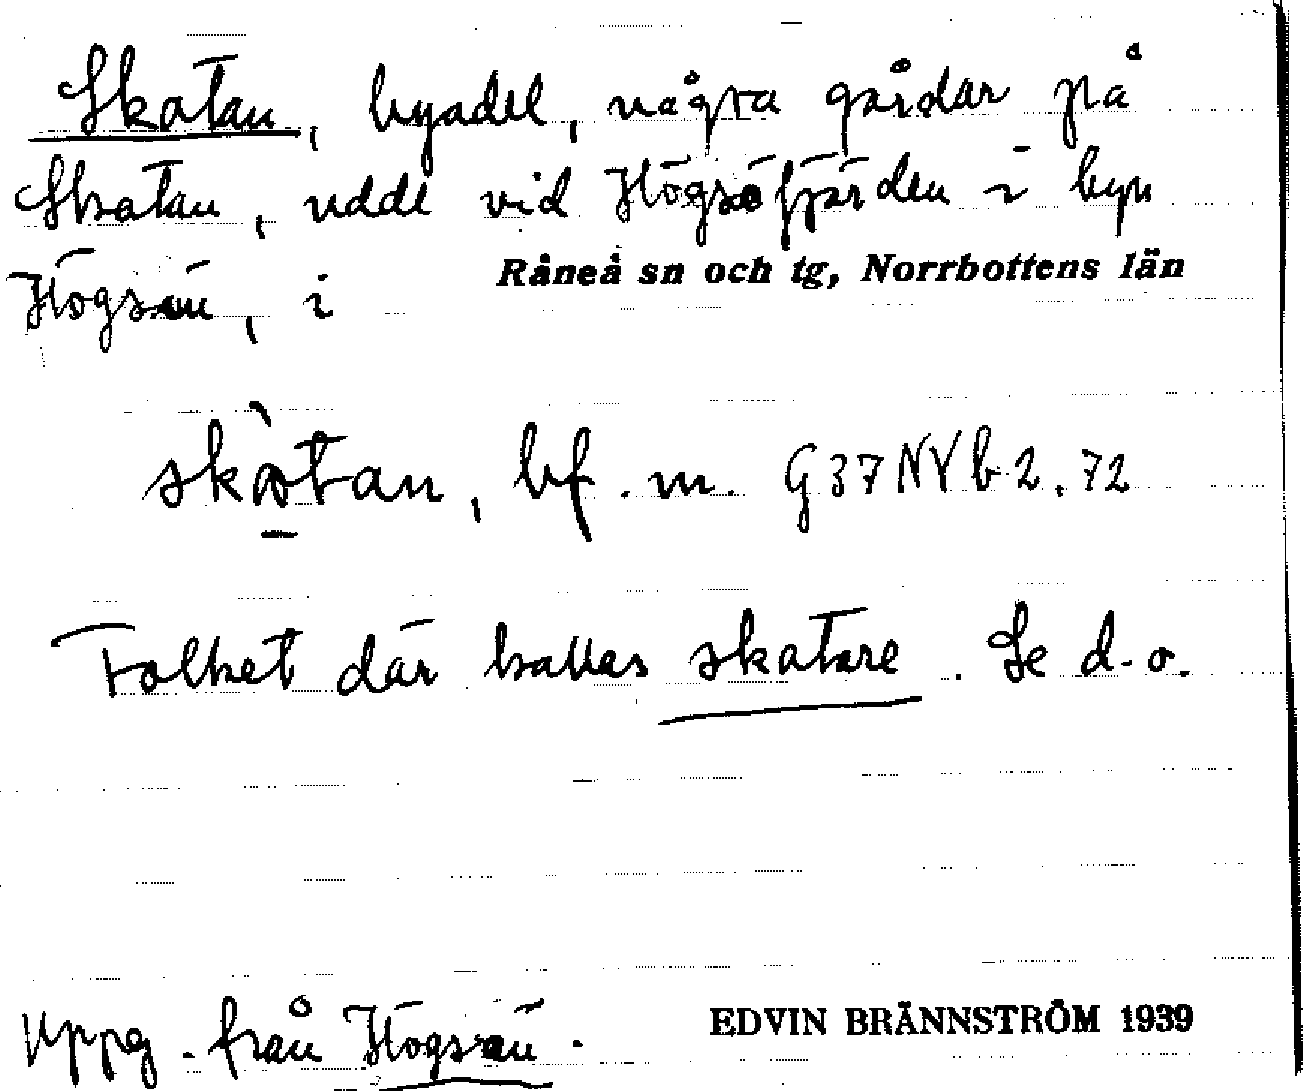 Skatan, byadel, några gårdar på
Skatan, udde vid Högsöfjärden i byn
Högsön, i Råneå sn och tg, Norrbottens län
skàtan, bf. m. G37NVb2.72
Folket där kallas skatare. Se d.o.
Uppg. från Högsön.
EDVIN BRÄNNSTRÖM 1939